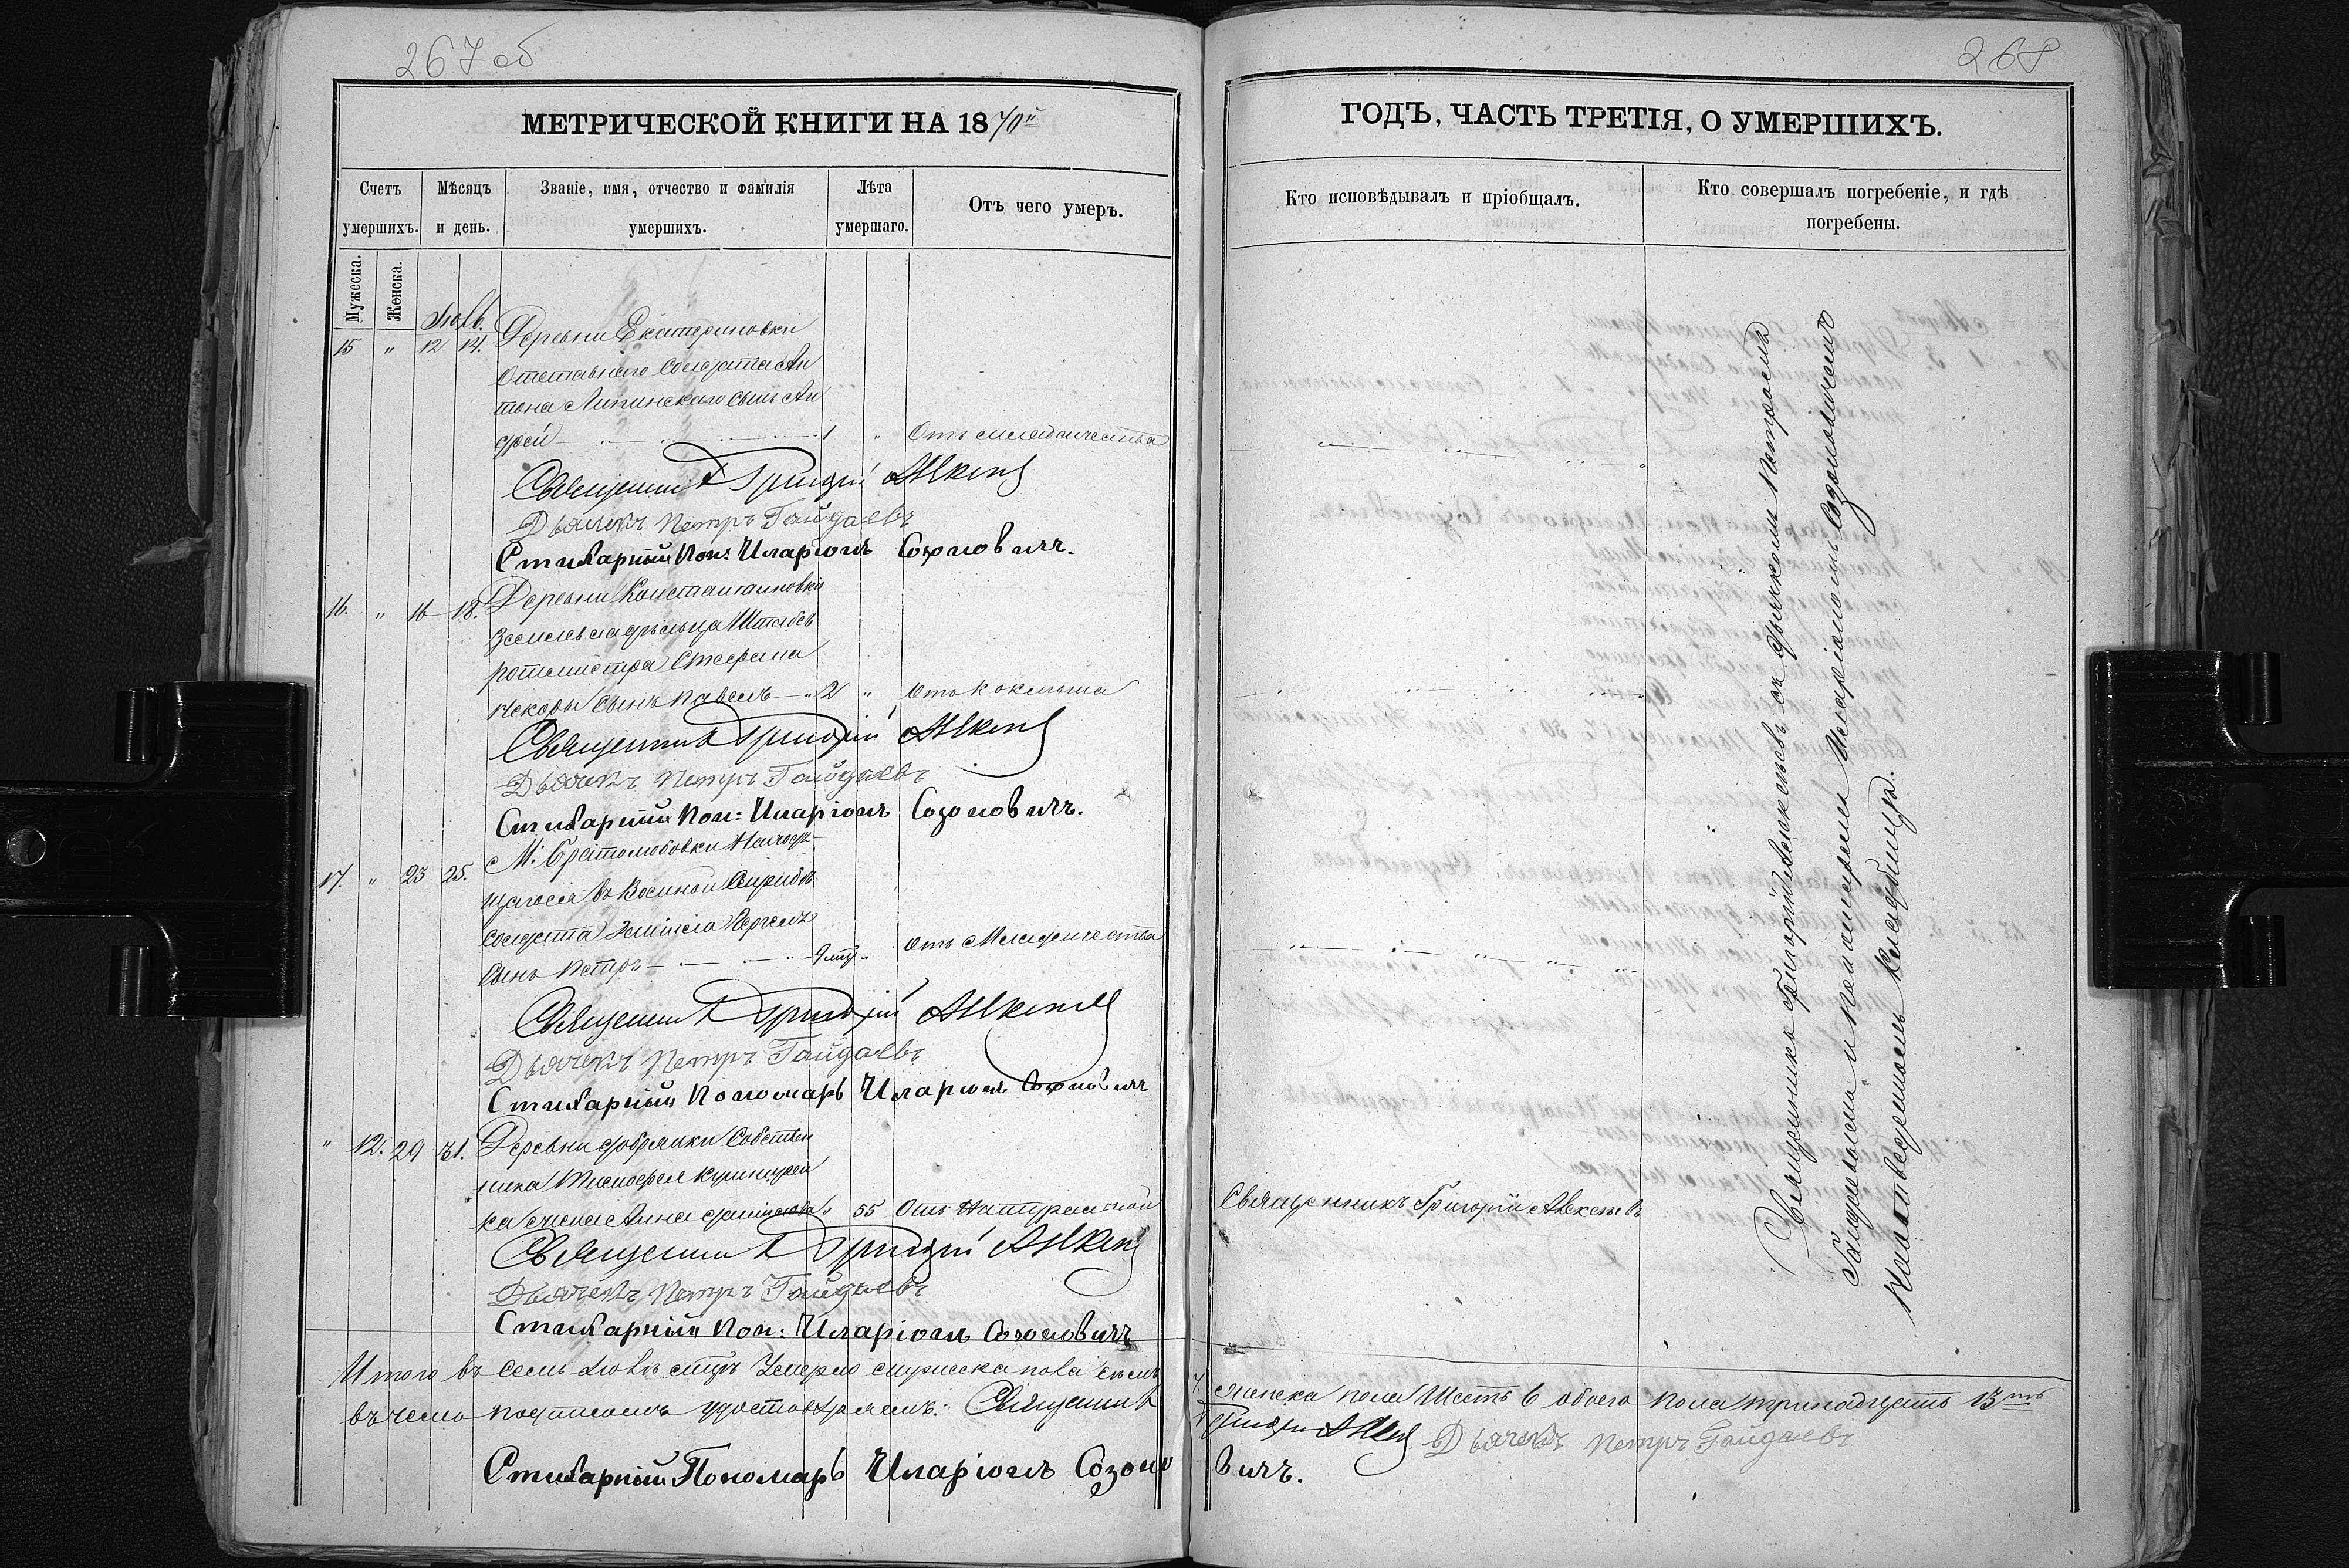 267 об
МЕТРИЧЕСКОЙ КНИГИ НА 1870й
Счетъ умершихъ.
Мѣсяцъ и день.
Званіе, имя, отчество и фамилія умершихъ.
Лѣта умершаго.
Отъ чего умеръ.
Мужеска.
Женска.
Іюль.
15 " 12 14. Деревни Екатериновки
Отставнаго Солдата Ан
тона Липинскаго сынъ Ан
дрей 1 " Отъ младенчества
Священникъ Григорій
Дьячекъ Петръ Гайдаевъ
Стихарный Пон: Иларіонъ Созоновичъ.
16. " 16 18. Деревни Константиновки
Землевладѣльца Штабсъ
ротмистра Стефана
сынъ Павелъ " 2 " Отъ коклюша
Священникъ Григорій
Дьячекъ Петръ Гайдаевъ
Стихарный Пон: Иларіонъ Созоновичъ.
17. " 23 25. М. Братолюбовки Находя
щагося въ Военной Службѣ
Солдата
Сынъ Петръ Отъ Младенчества
Священникъ Григорій
Дьячекъ Петръ Гайдаевъ
Стихарный Пономарь Иларіонъ Созоновичъ
" 12. 29 31. Деревни Добрянки Собствен
ника Тимофея
ка жена Анна 55 Отъ Натуральной
Священникъ Григорій
Дьячекъ Петръ Гайдаевъ
Стихарный Пон: Иларіонъ Созоновичъ
Итого въ семъ Іюлѣ м-цѣ Умерло мужеска пола семь
въ чемъ подписомъ удостовѣряемъ: Священникъ
Стихарный Пономарь Иларіонъ Созоно
268
ГОДЪ, ЧАСТЬ ТРЕТІЯ, О УМЕРШИХЪ.
Кто исповѣдывалъ и пріобщалъ.
Кто совершалъ погребеніе, и гдѣ погребены.
Священникъ Григорій Алексѣевъ
Священникъ Григорій Алексѣевъ съ дьячкомъ Петромъ
Гайдаевымъ и Пономаремъ Иларіономъ Созоновичемъ
На Приходскомъ кладбищѣ.
7. женска пола Шесть 6 обоего пола тринадцать 13ть
Григорій Дьячекъ Петръ Гайдаевъ
вичъ.